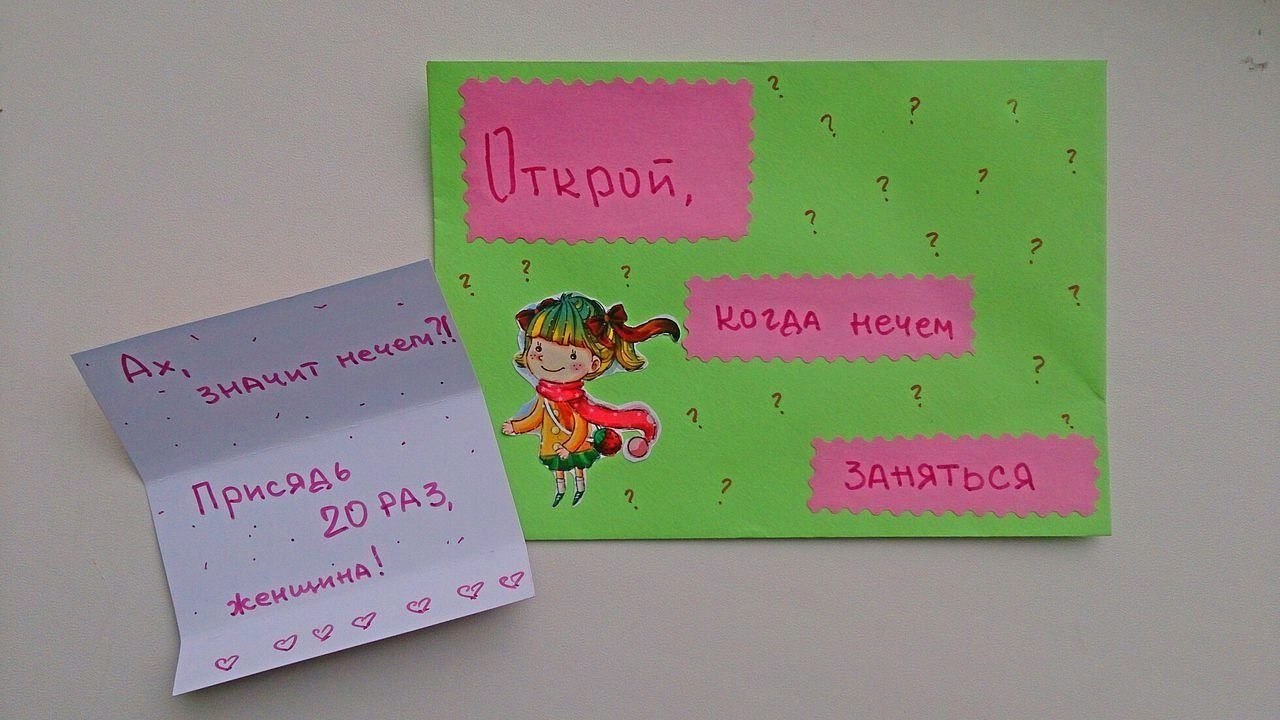 Открой,
когда нечем
заняться
Ах,
значит нечем?!
Присядь
20 раз,
женщина!